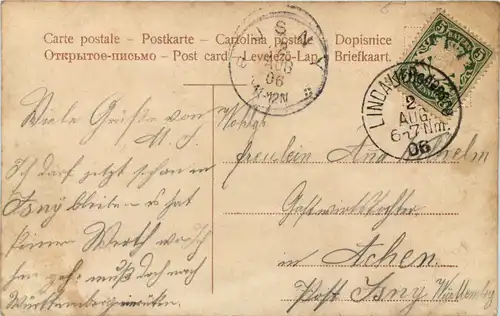 Carte postale - Postkarte - Cartolina postale Dopisnice
Открытое-письмо - Post card - Levelező-Lap. Briefkaart.
ISNY
AUG
06
5
BAYERN
5
LINDAU
2
AUG.
6-7 Nm.
06
Viele Grüße von
Ich darf jetzt schon in
Isny bleiben es hat
keinen Werth
muß doch noch
Wohlgb.
Fräulein
Gastwirtstochter
in Achen.
Post Isny Württemberg